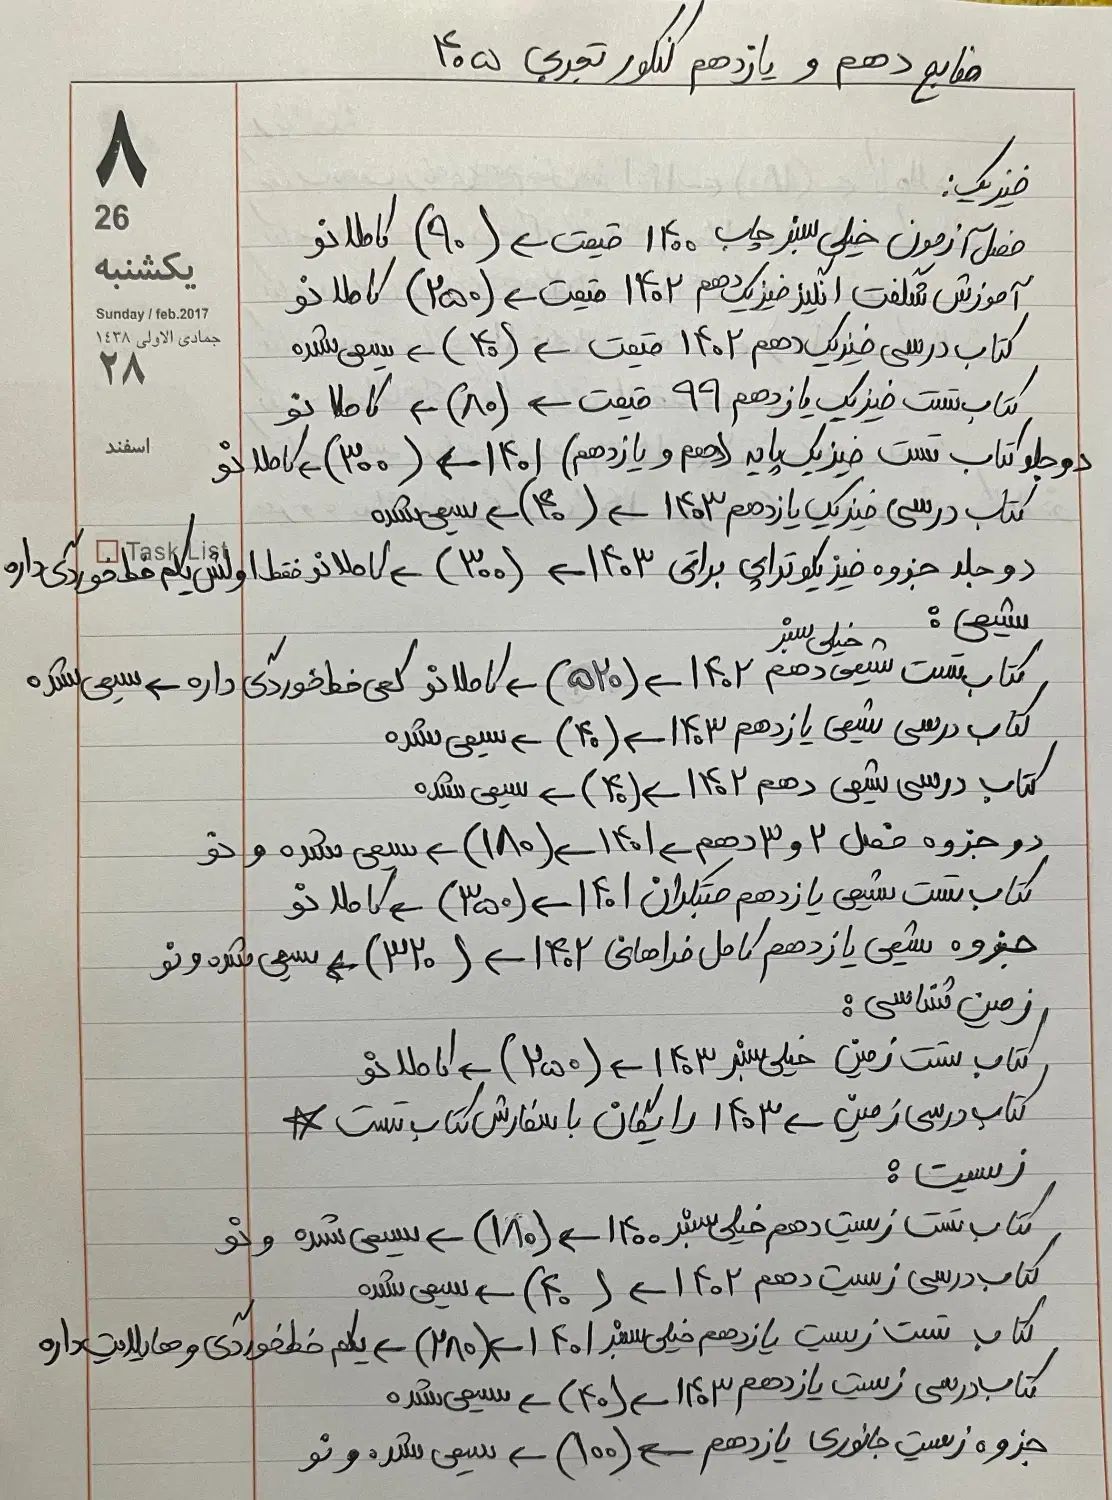 منابع دهم و یازدهم کنکور تجربی ۴۰۵
۸
26
یکشنبه
Sunday / feb.2017
جمادی الاولی ١٤٣٨
٢٨
اسفند
Task List
فیزیک:
فصل آزمون خیلی سبز چاپ ۱۴۰۰ قیمت ← (۹۰) کاملا نو
آموزش شگفت انگیز فیزیک دهم ۱۴۰۲ قیمت ← (۲۵۰) کاملا نو
کتاب درسی فیزیک دهم ۱۴۰۲ قیمت ← (۴۰) ← سیمی شده
کتاب تست فیزیک یازدهم ۹۹ قیمت ← (۸۰) ← کاملا نو
دو جلد کتاب تست فیزیک پایه (دهم و یازدهم) ۱۴۰۱ ← (۳۰۰) ← کاملا نو
کتاب درسی فیزیک یازدهم ۱۴۰۳ ← (۴۰) ← سیمی شده
دو جلد جزوه فیزیکوتراپی براتی ۱۴۰۳ ← (۳۰۰) ← کاملا نو فقط اولش یکم خط خوردگی داره
شیمی :
کتاب تست شیمی دهم ^ خیلی سبز ۱۴۰۲ ← (۵۲۰) ← کاملا نو کمی خط خوردگی داره ← سیمی شده
کتاب درسی شیمی یازدهم ۱۴۰۳ ← (۴۰) ← سیمی شده
کتاب درسی شیمی دهم ۱۴۰۲ ← (۴۰) ← سیمی شده
دو جزوه فصل ۲ و ۳ دهم ← ۱۴۰۱ ← (۱۸۰) ← سیمی شده و نو
کتاب تست شیمی یازدهم مبتکران ۱۴۰۱ ← (۳۵۰) ← کاملا نو
جزوه شیمی یازدهم کامل فراهانی ۱۴۰۲ ← (۳۲۰) ← سیمی شده و نو
زمین شناسی :
کتاب تست زمین خیلی سبز ۱۴۰۳ ← (۲۵۰) ← کاملا نو
کتاب درسی زمین ← ۱۴۰۳ رایگان با سفارش کتاب تست *
زیست :
کتاب تست زیست دهم خیلی سبز ۱۴۰۰ ← (۱۸۰) ← سیمی شده و نو
کتاب درسی زیست دهم ۱۴۰۲ ← (۴۰) ← سیمی شده
کتاب تست زیست یازدهم خیلی سبز ۱۴۰۱ ← (۲۸۰) ← یکم خط خوردگی و هایلایت داره
کتاب درسی زیست یازدهم ۱۴۰۳ ← (۴۰) ← سیمی شده
جزوه زیست جانوری یازدهم ← (۱۰۰) ← سیمی شده و نو